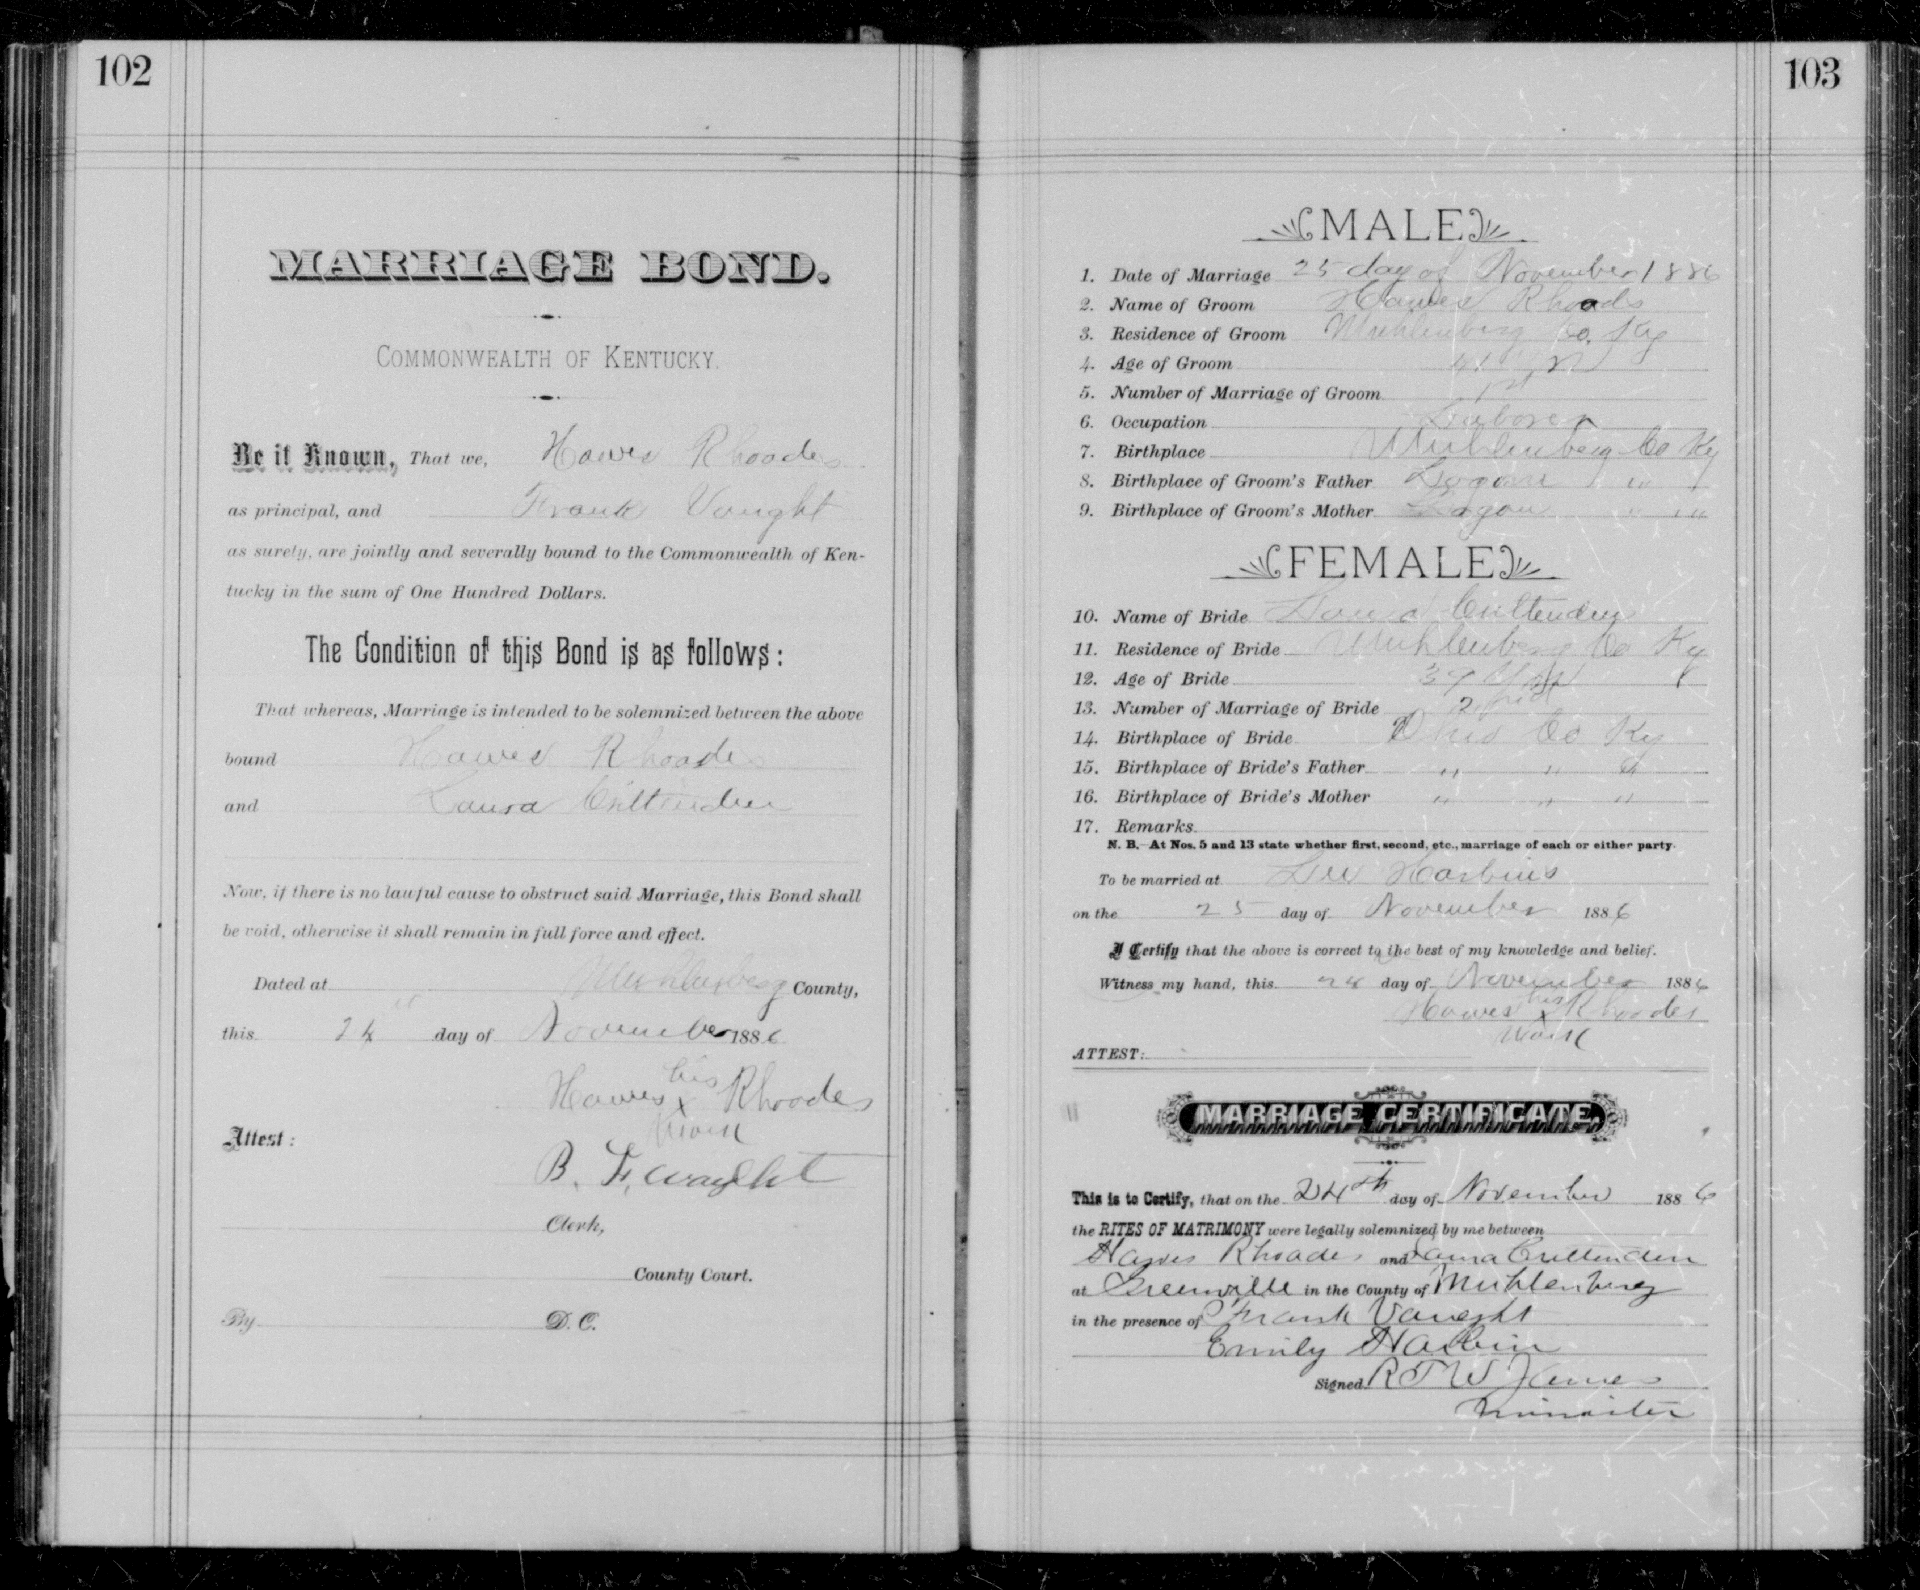 102
MARRIAGE BOND.
COMMONWEALTH OF KENTUCKY.
Be it Known, That we, Hawes Rhoades
as principal, and Frank Vaught
as surely, are jointly and severally bound to the Commonwealth of Ken-
tucky in the sum of One Hundred Dollars.
The Condition of this Bond is as follows:
That whereas, Marriage is intended to be solemnized between the above
bound Hawes Rhoades
and Laura Crittenden
Now, if there is no lawful cause to obstruct said Marriage, this Bond shall
be void, otherwise it shall remain in full force and effect.
Dated at Muhlenberg County,
this 24 day of November 1886
Hawes his Rhoades
x
mark
Attest:
B. F. Waught
Clerk,
County Court.
By D. C.
103
MALE
1. Date of Marriage 25 day of November 1886
2. Name of Groom Hawes Rhoads
3. Residence of Groom Muhlenberg Co. Ky
4. Age of Groom
5. Number of Marriage of Groom 1st
6. Occupation Laborer
7. Birthplace Muhlenberg Co Ky
8. Birthplace of Groom's Father Logan " "
9. Birthplace of Groom's Mother Logan " "
FEMALE
10. Name of Bride Laura Crittenden
11. Residence of Bride Muhlenberg Co Ky
12. Age of Bride
13. Number of Marriage of Bride 2
14. Birthplace of Bride Ohio Co Ky
15. Birthplace of Bride's Father " " "
16. Birthplace of Bride's Mother " " "
17. Remarks
N. B.—At Nos. 5 and 13 state whether first, second, etc., marriage of each or either party.
To be married at Lee Harbins
on the 25 day of November 1886
I Certify that the above is correct to the best of my knowledge and belief.
Witness my hand, this 24 day of November 1886
Hawes his Rhoades
x
mark
ATTEST:
MARRIAGE CERTIFICATE.
This is to Certify, that on the 24th day of November 1886
the RITES OF MATRIMONY were legally solemnized by me between
Hawes Rhoades and Laura Crittenden
at Greenville in the County of Muhlenberg
in the presence of Frank Vaught
Emily Harbin
Signed R T W James
minister